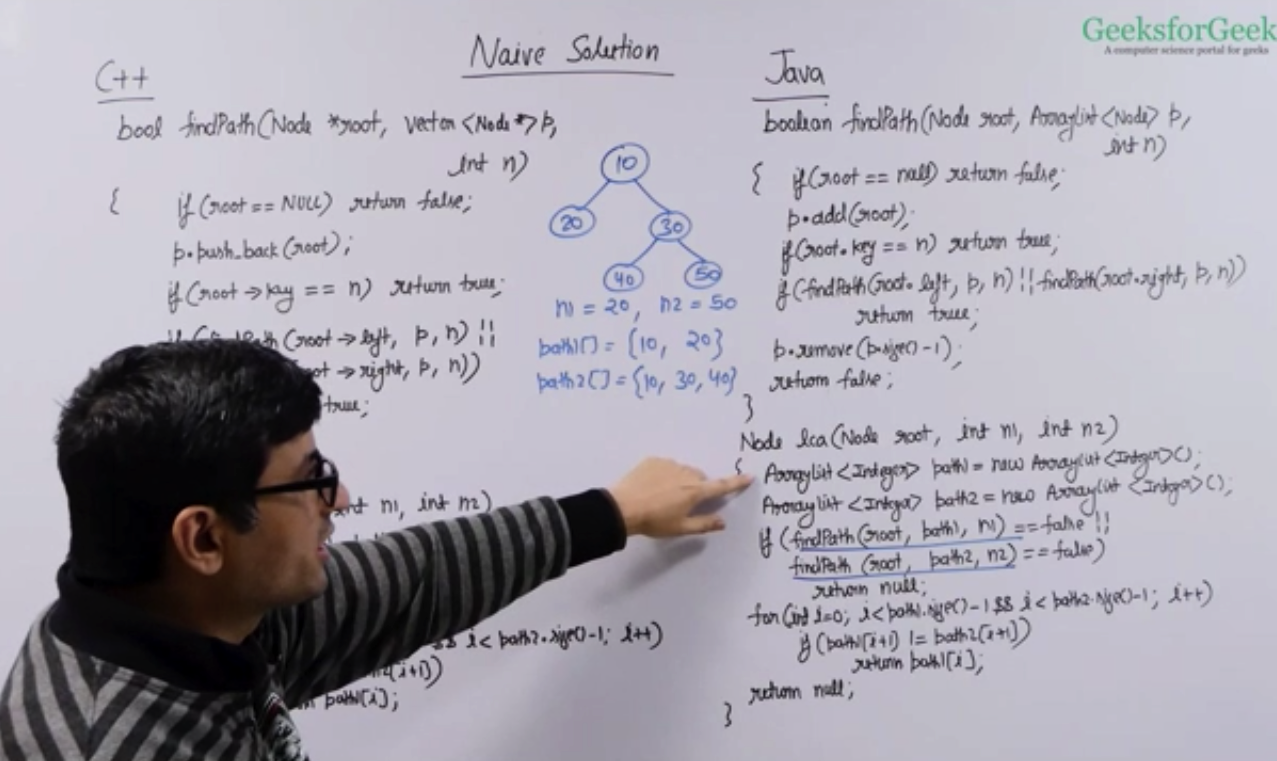 GeeksforGeek
A computer science portal for geeks
Naive Solution
C++
bool findPath(Node *root, vector <Node *> p,
int n)
{ if (root == NULL) return false;
p.push_back(root);
if (root → key == n) return true;
(root → left, p, n) ||
→ right, p, n))
true;
int n1, int n2)
&& i < path2.size()-1; i++)
[i+1])
path1[i];
10
20
30
40
50
n1 = 20, n2 = 50
path1[] = {10, 20}
path2[] = {10, 30, 40}
Java
boolean findPath(Node root, ArrayList <Node> p,
int n)
{ if (root == null) return false;
p.add(root);
if (root.key == n) return true;
if (findPath(root.left, p, n) || findPath(root.right, p, n))
return true;
p.remove(p.size()-1);
return false;
}
Node lca(Node root, int n1, int n2)
{ ArrayList <Integer> path1 = new ArrayList <Integer>();
ArrayList <Integer> path2 = new ArrayList <Integer>();
if (findPath(root, path1, n1) == false ||
findPath (root, path2, n2) == false)
return null;
for (int i=0; i < path1.size()-1 && i < path2.size()-1; i++)
if (path1[i+1] != path2[i+1])
return path1[i];
return null;
}